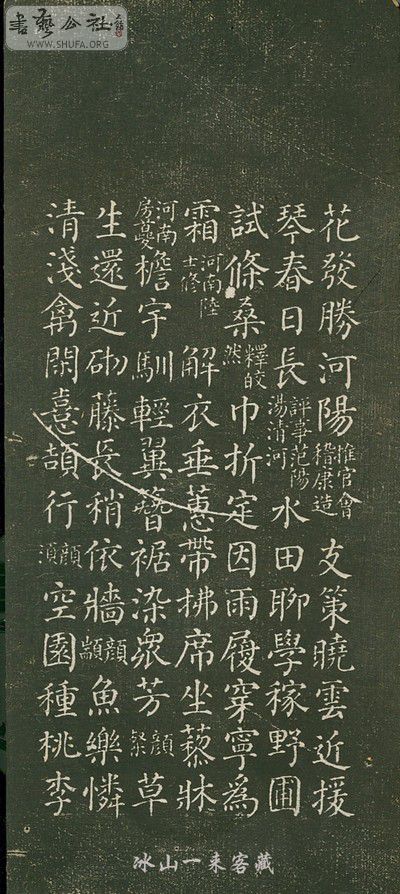 書藝公社
WWW.SHUFA.ORG
花發勝河陽推官會稽康造支策曉雲近援
琴春日長評事范陽湯清河水田聊學稼野圃
試條桑釋皎然巾折定因雨履穿寧為
霜河南陸士修解衣垂蕙帶拂席坐藜牀
河南房夔檐宇馴輕翼簪裾染衆芳顏粲草
生還近砌藤長稍依牆顏顓魚樂憐
清淺禽閑憙頡行顏須空園種桃李
冰山一来客藏